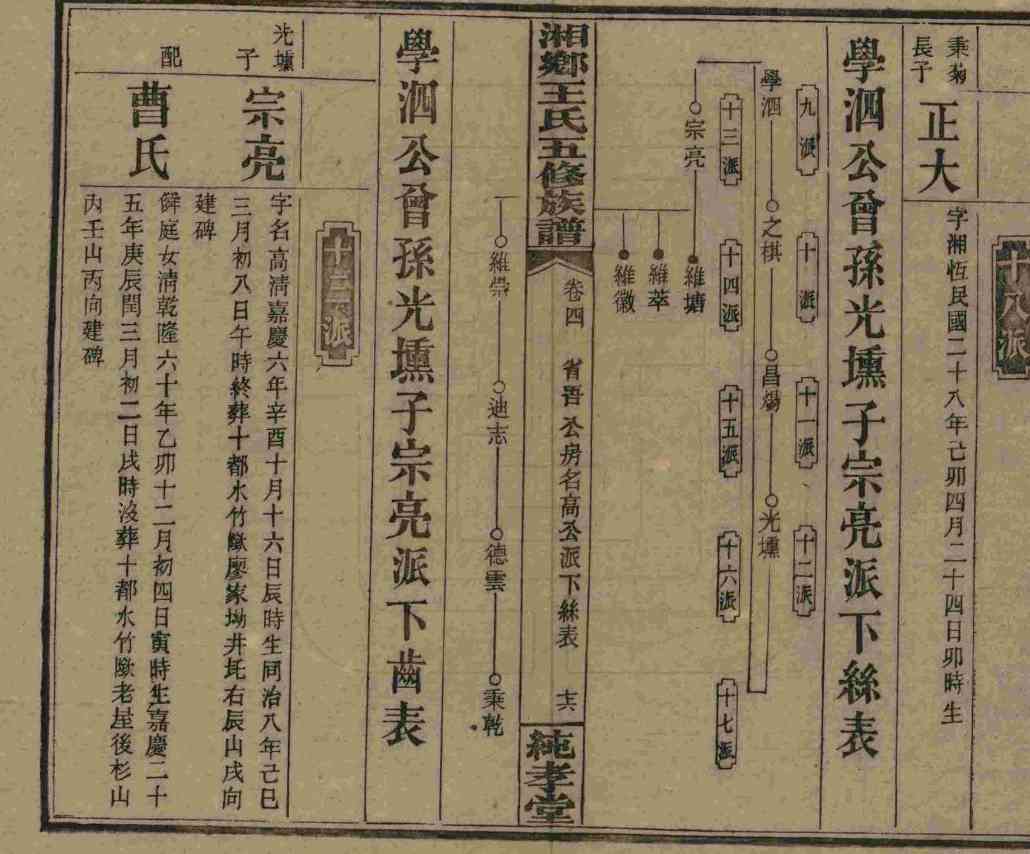 十八派
秉菊
長子
正大
字湘恆民國二十八年己卯四月二十四日卯時生
學泗公曾孫光壎子宗亮派下絲表
九派
十派
十一派
十二派
學泗
之棋
昌煬
光壎
十三派
十四派
十五派
十六派
十七派
宗亮
維塘
維萃
維徽
湘鄉王氏五修族譜
卷四
省吾公房名高公派下絲表
純孝堂
維崇
迪志
德雲
秉乾
學泗公曾孫光壎子宗亮派下齒表
十三派
光壎
子
宗亮
字名高清嘉慶六年辛酉十月十六日辰時生同治八年己巳
三月初八日午時終葬十都水竹㙟廖家坳井圫右辰山戌向
建碑
配
曹氏
庭女清乾隆六十年乙卯十二月初四日寅時生嘉慶二十
五年庚辰閏三月初二日戌時沒葬十都水竹㙟老屋後杉山
內壬山丙向建碑